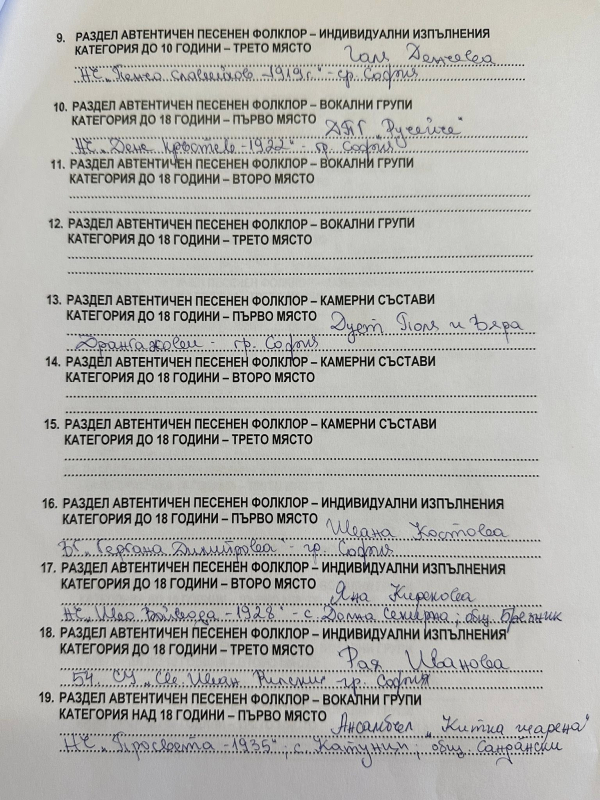 9. РАЗДЕЛ АВТЕНТИЧЕН ПЕСЕНЕН ФОЛКЛОР – ИНДИВИДУАЛНИ ИЗПЪЛНЕНИЯ
КАТЕГОРИЯ ДО 10 ГОДИНИ – ТРЕТО МЯСТО Галя Денчева
НЧ „Пенчо Славейков - 1919г." - гр. София
10. РАЗДЕЛ АВТЕНТИЧЕН ПЕСЕНЕН ФОЛКЛОР – ВОКАЛНИ ГРУПИ
КАТЕГОРИЯ ДО 18 ГОДИНИ – ПЪРВО МЯСТО ДПГ „Ручейче"
НЧ „Дена Кръстева - 1922" - гр. София
11. РАЗДЕЛ АВТЕНТИЧЕН ПЕСЕНЕН ФОЛКЛОР – ВОКАЛНИ ГРУПИ
КАТЕГОРИЯ ДО 18 ГОДИНИ – ВТОРО МЯСТО
12. РАЗДЕЛ АВТЕНТИЧЕН ПЕСЕНЕН ФОЛКЛОР – ВОКАЛНИ ГРУПИ
КАТЕГОРИЯ ДО 18 ГОДИНИ – ТРЕТО МЯСТО
13. РАЗДЕЛ АВТЕНТИЧЕН ПЕСЕНЕН ФОЛКЛОР – КАМЕРНИ СЪСТАВИ
КАТЕГОРИЯ ДО 18 ГОДИНИ – ПЪРВО МЯСТО Дует Поля и Вяра
- гр. София
14. РАЗДЕЛ АВТЕНТИЧЕН ПЕСЕНЕН ФОЛКЛОР – КАМЕРНИ СЪСТАВИ
КАТЕГОРИЯ ДО 18 ГОДИНИ – ВТОРО МЯСТО
15. РАЗДЕЛ АВТЕНТИЧЕН ПЕСЕНЕН ФОЛКЛОР – КАМЕРНИ СЪСТАВИ
КАТЕГОРИЯ ДО 18 ГОДИНИ – ТРЕТО МЯСТО
16. РАЗДЕЛ АВТЕНТИЧЕН ПЕСЕНЕН ФОЛКЛОР – ИНДИВИДУАЛНИ ИЗПЪЛНЕНИЯ
КАТЕГОРИЯ ДО 18 ГОДИНИ – ПЪРВО МЯСТО Ивана Костова
ВГ „Гергана Димитрова" - гр. София
17. РАЗДЕЛ АВТЕНТИЧЕН ПЕСЕНЕН ФОЛКЛОР – ИНДИВИДУАЛНИ ИЗПЪЛНЕНИЯ
КАТЕГОРИЯ ДО 18 ГОДИНИ – ВТОРО МЯСТО Яна Кирекова
НЧ „Иво Войвода - 1928" - с. Долна Секирна, общ. Брезник
18. РАЗДЕЛ АВТЕНТИЧЕН ПЕСЕНЕН ФОЛКЛОР – ИНДИВИДУАЛНИ ИЗПЪЛНЕНИЯ
КАТЕГОРИЯ ДО 18 ГОДИНИ – ТРЕТО МЯСТО Рая Иванова
54. СУ „Св. Иван Рилски" - гр. София
19. РАЗДЕЛ АВТЕНТИЧЕН ПЕСЕНЕН ФОЛКЛОР – ВОКАЛНИ ГРУПИ
КАТЕГОРИЯ НАД 18 ГОДИНИ – ПЪРВО МЯСТО Ансамбъл „Китка шарена"
НЧ „Просвета - 1935", с. Катунци, общ. Сандански